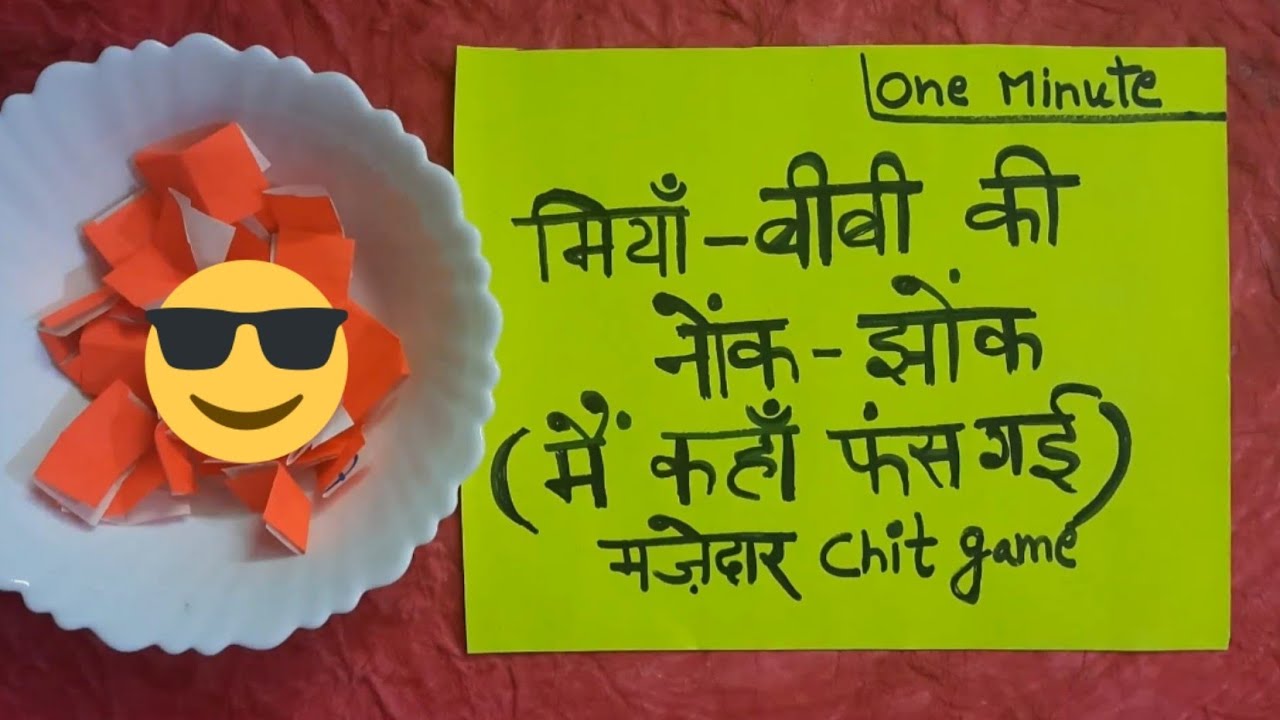 One Minute
मियाँ - बीबी की
नोंक - झोंक
(मैं कहाँ फंस गई)
मज़ेदार Chit game